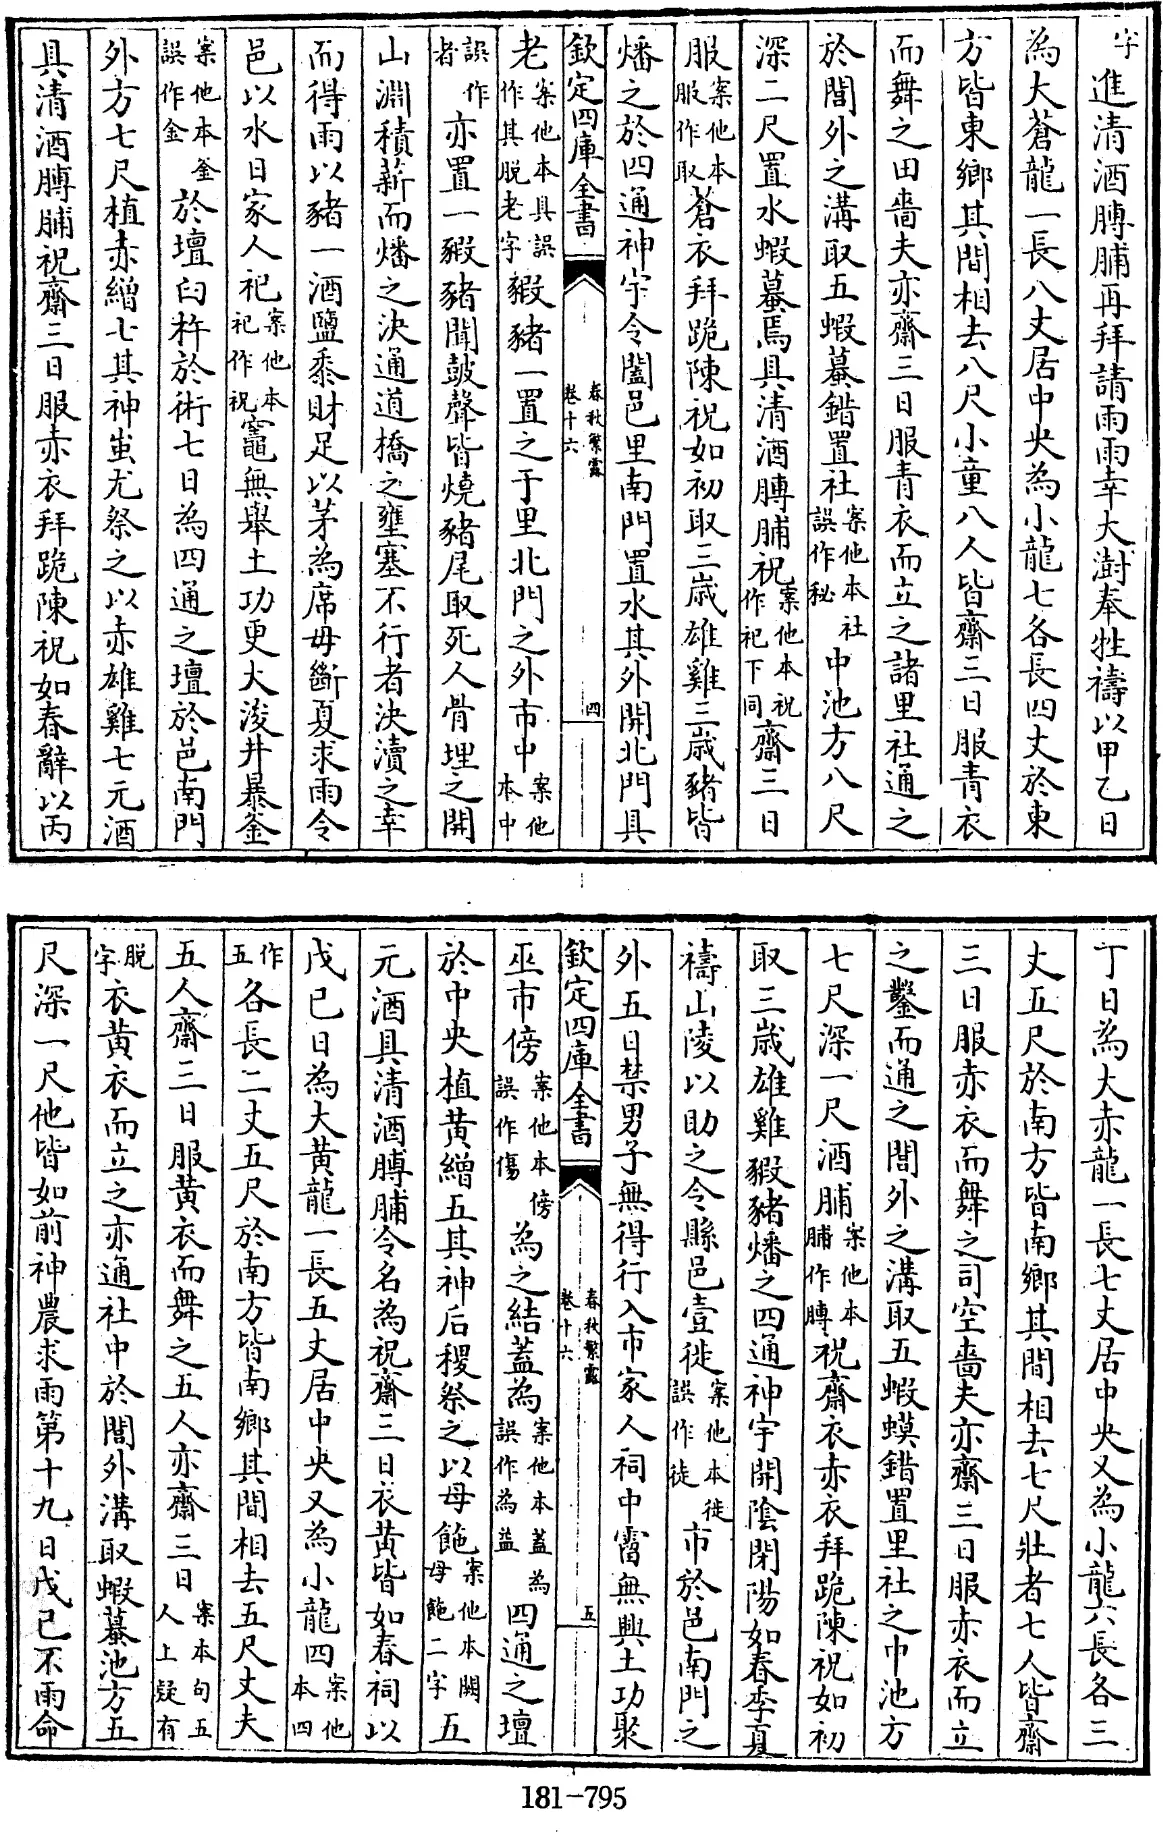 字進清酒膊脯再拜請雨雨幸大澍奉牲禱以甲乙日
為大蒼龍一長八丈居中央為小龍七各長四丈於東
方皆東鄉其間相去八尺小童八人皆齋三日服青衣
而舞之田嗇夫亦齋三日服青衣而立之諸里社通之
於閭外之溝取五蝦蟇錯置社案他本社誤作秘中池方八尺
深二尺置水蝦蟇焉具清酒膊脯祝案他本祝作祀下同齋三日
服案他本服作取蒼衣拜跪陳祝如初取三歲雄雞三歲豭皆
燔之於四通神宇令闔邑里南門置水其外開北門具
欽定四庫全書
春秋繁露
卷十六
四
老案他本具誤作其脫老字豭豬一置之于里北門之外市中案他本中
誤作者亦置一豭豬聞鼓聲皆燒豬尾取死人骨埋之開
山淵積薪而燔之決通道橋之壅塞不行者決瀆之幸
而得雨以豬一酒鹽黍財足以茅為席毋斷夏求雨令
邑以水日家人祀案他本祀作祝竈無舉土功更大浚井暴釜
案他本釜誤作金於壇臼杵於術七日為四通之壇於邑南門
外方七尺植赤繒七其神蚩尤祭之以赤雄雞七元酒
具清酒膊脯祝齋三日服赤衣拜跪陳祝如春辭以丙
丁日為大赤龍一長七丈居中央又為小龍六長各三
丈五尺於南方皆南鄉其間相去七尺壯者七人皆齋
三日服赤衣而舞之司空嗇夫亦齋三日服赤衣而立
之鑿而通之閭外之溝取五蝦蟆錯置里社之中池方
七尺深一尺酒脯案他本脯作膊祝齋衣赤衣拜跪陳祝如初
取三歲雄雞豭豬燔之四通神宇開陰閉陽如春季夏
禱山陵以助之令縣邑壹徙案他本徙誤作徒市於邑南門之
外五日禁男子無得行入市家人祠中霤無興土功聚
欽定四庫全書
春秋繁露
卷十六
五
巫市傍案他本傍誤作傷為之結蓋為案他本蓋為誤作為益四通之壇
於中央植黃繒五其神后稷祭之以母飽案他本闕母飽二字五
元酒具清酒膊脯令名為祝齋三日衣黃皆如春祠以
戊己日為大黃龍一長五丈居中央又為小龍四案他本四
作五各長二丈五尺於南方皆南鄉其間相去五尺丈夫
五人齋三日服黃衣而舞之五人亦齋三日案本句五人上疑有
脫字衣黃衣而立之亦通社中於閭外溝取蝦蟇池方五
尺深一尺他皆如前神農求雨第十九日戊己不雨命
181-795